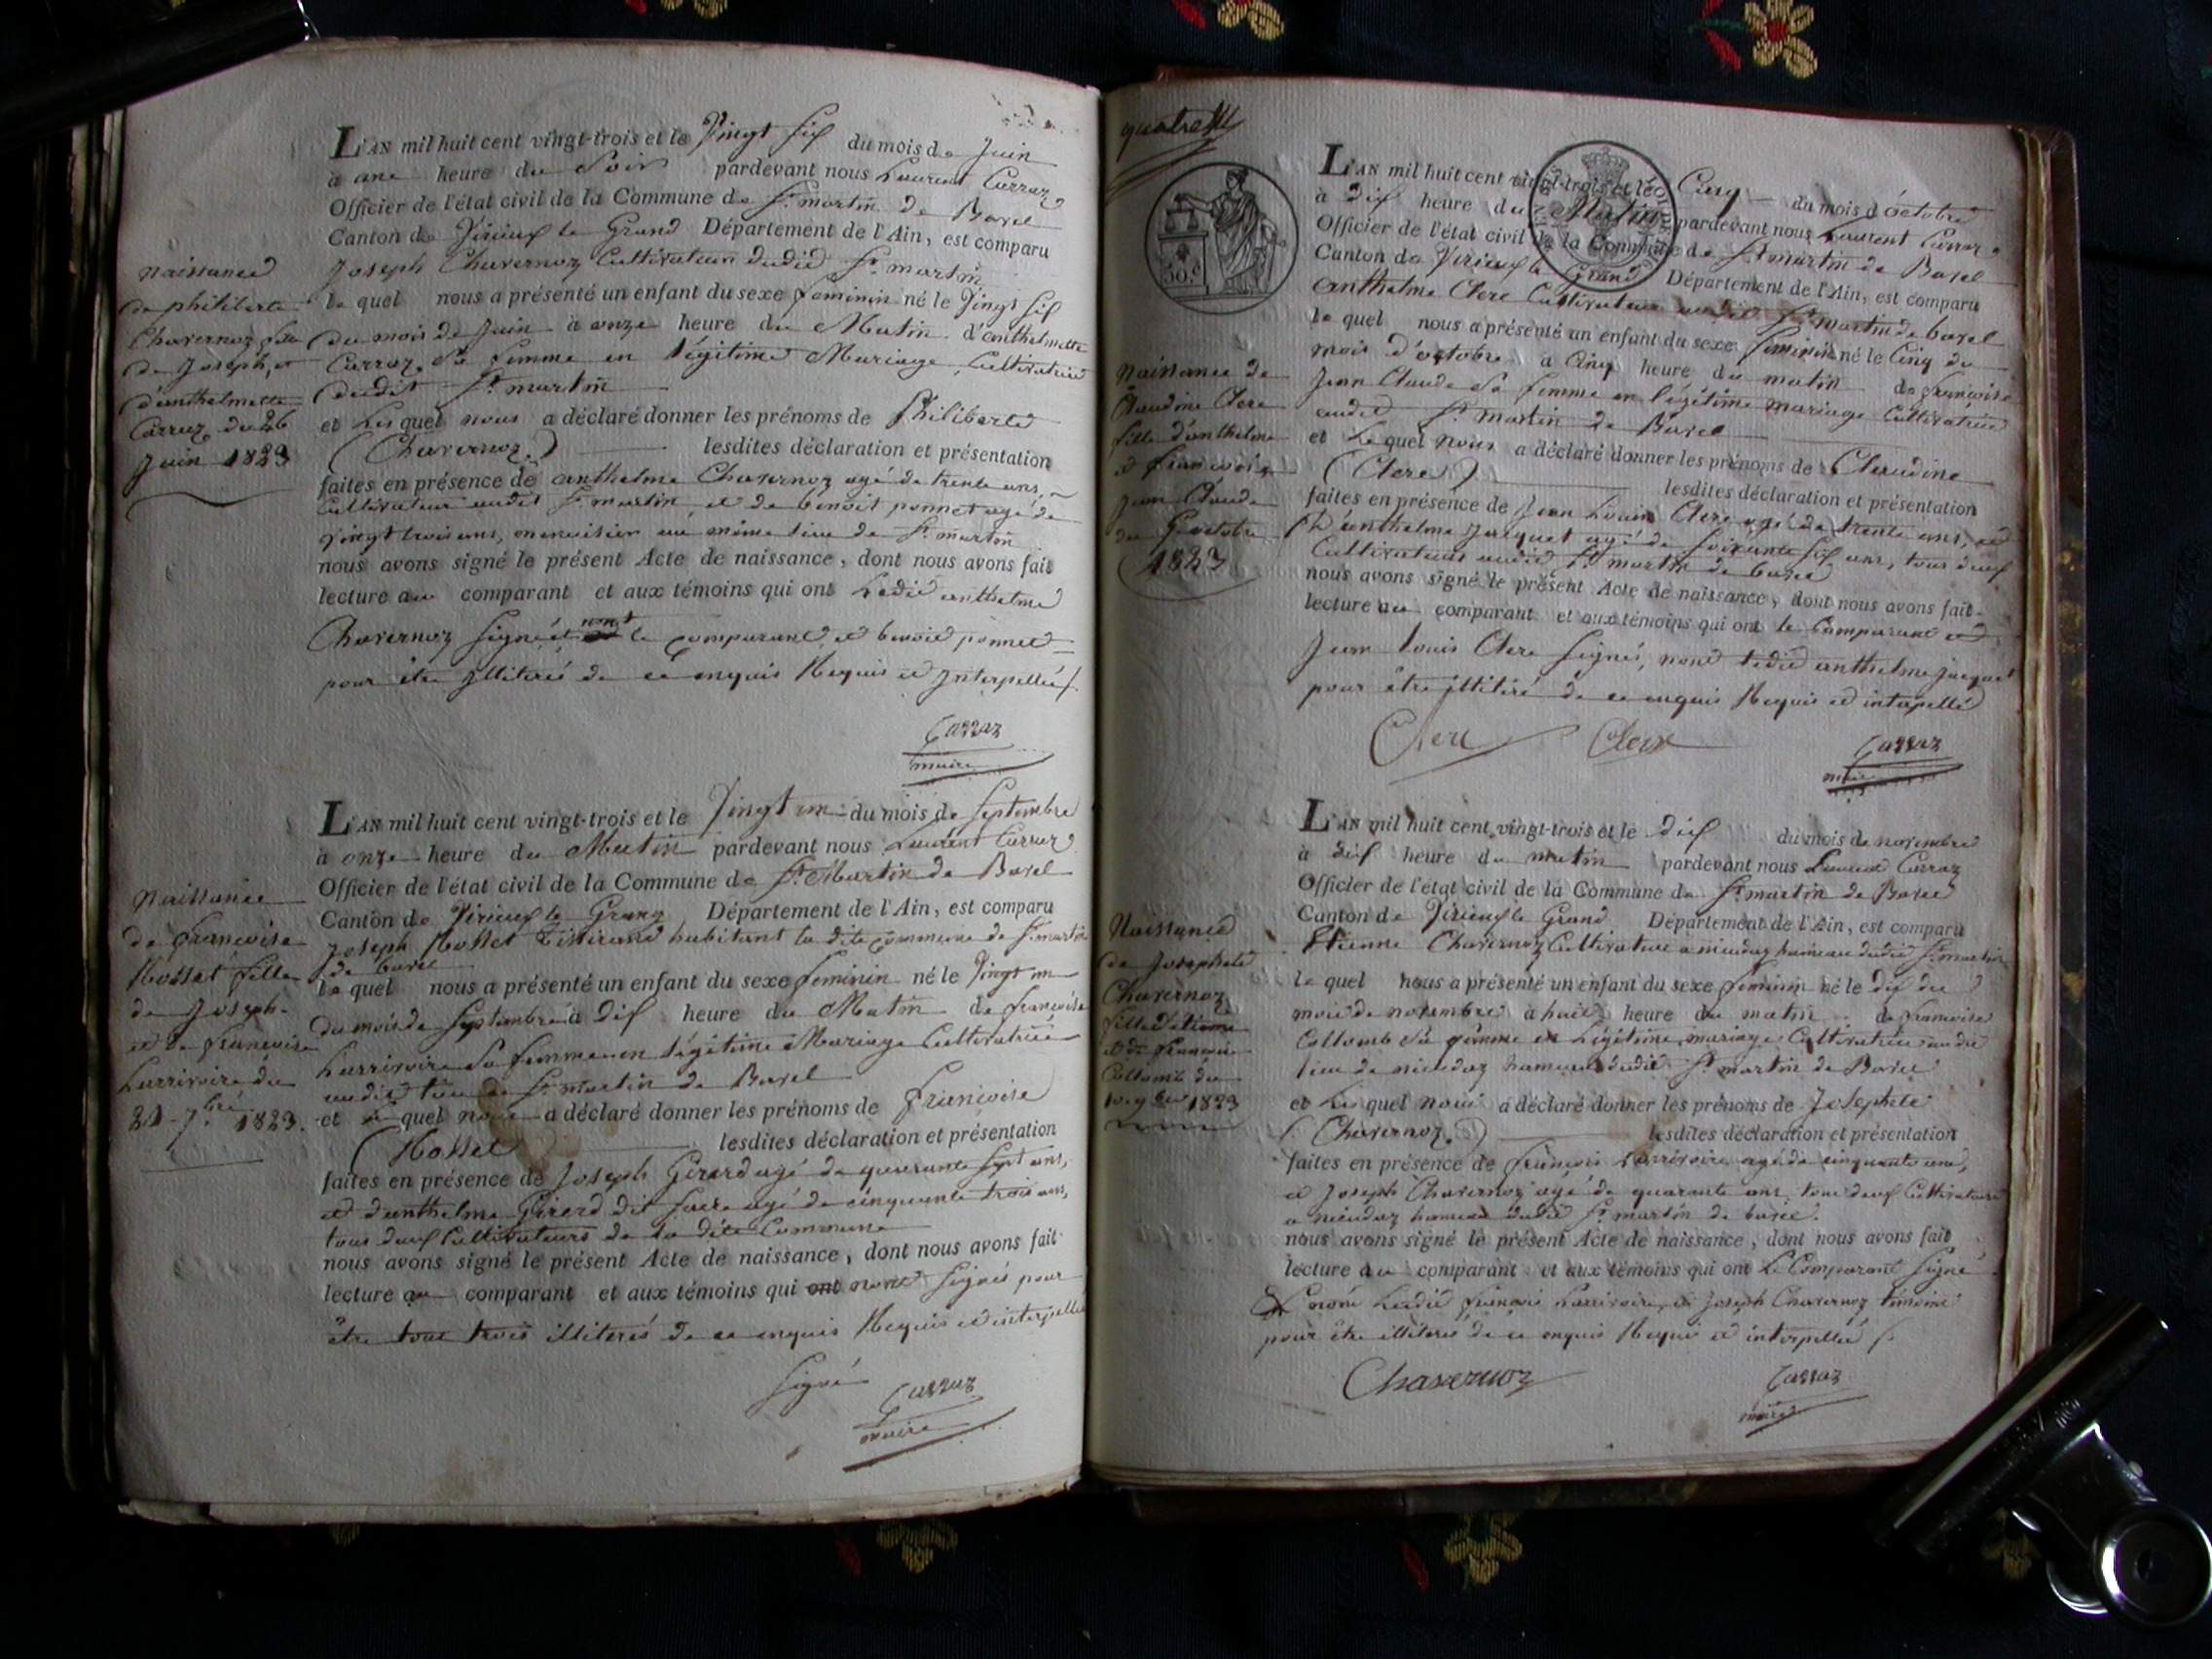 naissance
de philiberte
Chavernoz fille
de Joseph, et
d'anthelmette
Carraz du 26
Juin 1823
L'AN mil huit cent vingt-trois et le Vingt Six du mois de Juin
à une heure du Soir pardevant nous Laurent Carraz
Officier de l'état civil de la Commune de St. martin de Bavel
Canton de Virieux le Grand Département de l'Ain, est comparu
Joseph Chavernoz Cultivateur dudit St. martin
le quel nous a présenté un enfant du sexe feminin né le Vingt Six
du mois de Juin à onze heure du Matin d'anthelmette
Carraz Sa femme en légitime Mariage, Cultivatrice
dudit St. martin
et lequel nous a déclaré donner les prénoms de Philiberte
(Chavernoz.) lesdites déclaration et présentation
faites en présence de anthelme Chavernoz agé de trente ans,
Cultivateur audit St. martin, et de benoit ponnet agé de
vingt trois ans, menuisier au même lieu de St. martin
nous avons signé le présent Acte de naissance, dont nous avons fait
lecture au comparant et aux témoins qui ont Ledit anthelme
Chavernoz Signé et non le Comparant et benoit ponnet
pour être illiterés de ce enquis Requis et Interpellés.
Carraz
maire
Naissance
de francoise
Rosset fille
de Joseph
et de francoise
Larrivoire du
21 7.bre 1823.
L'AN mil huit cent vingt-trois et le Vingt un du mois de Septembre
à onze heure du Matin pardevant nous Laurent Carraz
Officier de l'état civil de la Commune de St. Martin de Bavel
Canton de Virieux le Grand Département de l'Ain, est comparu
Joseph Rosset Tisserand habitant la dite Commune de St. martin
de bavel
le quel nous a présenté un enfant du sexe feminin né le Vingt un
du mois de Septembre à Dix heure du Matin de francoise
Larrivoire Sa femme en légitime Mariage Cultivatrice
audit lieu de St. martin de Bavel
et lequel nous a déclaré donner les prénoms de Francoise
(Rosset) lesdites déclaration et présentation
faites en présence de Joseph Girerd agé de quarante Sept ans,
et d'anthelme Girerd dit agé de cinquante trois ans,
tous deux Cultivateurs de la dite Commune
nous avons signé le présent Acte de naissance, dont nous avons fait
lecture au comparant et aux témoins qui ont nont Signés pour
être tous trois illiterés de ce enquis Requis et interpellés
Signé Carraz
maire
quatre
50.c
Naissance de
Claudine Clerc
fille d'anthelme
et francoise
Jean Claude
du 5 octobre
1823
L'AN mil huit cent vingt-trois et le Cinq du mois d'octobre
à dix heure du Matin pardevant nous Laurent Carraz
Officier de l'état civil de la Commune de St. martin de Bavel
Canton de Virieux le Grand Département de l'Ain, est comparu
anthelme Clerc Cultivateur audit St. martin de bavel
le quel nous a présenté un enfant du sexe feminin né le Cinq du
mois d'octobre à Cinq heure du matin de francoise
Jean Claude Sa femme en légitime mariage Cultivatrice
audit St. martin de Bavel
et Lequel nous a déclaré donner les prénoms de Claudine
(Clerc) lesdites déclaration et présentation
faites en présence de Jean Louis Clerc agé de trente ans, et
D'anthelme Jacquet agé de Soixante Six ans, tous deux
Cultivateurs audit St. martin de bavel
nous avons signé le présent Acte de naissance, dont nous avons fait
lecture au comparant et aux témoins qui ont le Comparant et
Jean Louis Clerc Signés, nont ledit anthelme Jacquet
pour être illitéré de ce enquis Requis et interpellé
Clerc Clerc Carraz
maire
Naissance
de Josephete
Chavernoz
fille d'etienne
et de francoise
Collomb du
10 9.bre 1823
L'AN mil huit cent vingt-trois et le dix du mois de novembre
à dix heure du matin pardevant nous Laurent Carraz
Officier de l'état civil de la Commune de St. martin de Bavel
Canton de Virieux le Grand Département de l'Ain, est comparu
Etienne Chavernoz Cultivateur a hameau dudit St. martin
le quel nous a présenté un enfant du sexe feminin né le dix du
mois de novembre à huit heure du matin de francoise
Collomb Sa femme en Légitime mariage Cultivatrice audit
lieu de hameau dudit St. martin de Bavel
et lequel nous a déclaré donner les prénoms de Josephete
(Chavernoz.) lesdites déclaration et présentation
faites en présence de francois Larrivoire agé de cinquante ans,
et Joseph Chavernoz agé de quarante ans, tous deux Cultivateurs
a hameau dudit St. martin de bavel.
nous avons signé le présent Acte de naissance, dont nous avons fait
lecture au comparant et aux témoins qui ont Le Comparant Signé
nont Ledit francois Larrivoire, et Joseph Chavernoz témoins
pour être illiterés de ce enquis Requis et interpellés.
Chavernoz Carraz
maire